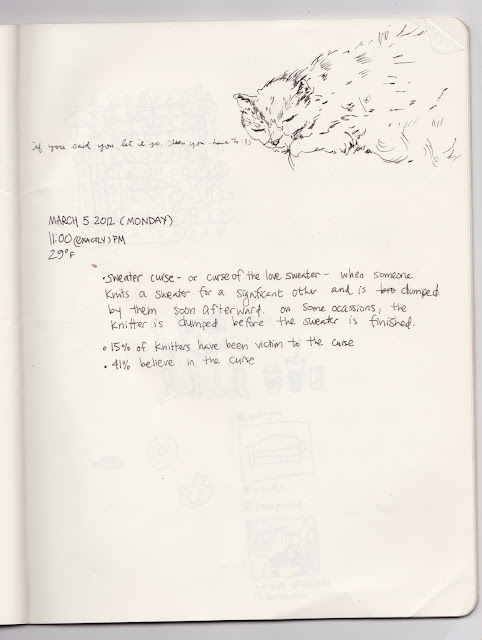 if you said you let it go, then you have to (?)
MARCH 5 2012 (MONDAY)
11:00 (EXACTLY) PM
29°F
• sweater curse - or curse of the love sweater - when someone
knits a sweater for a significant other and is dumped
by them soon afterward. on some ocassions, the
knitter is dumped before the sweater is finished.
• 15% of knitters have been victim to the curse
• 41% believe in the curse